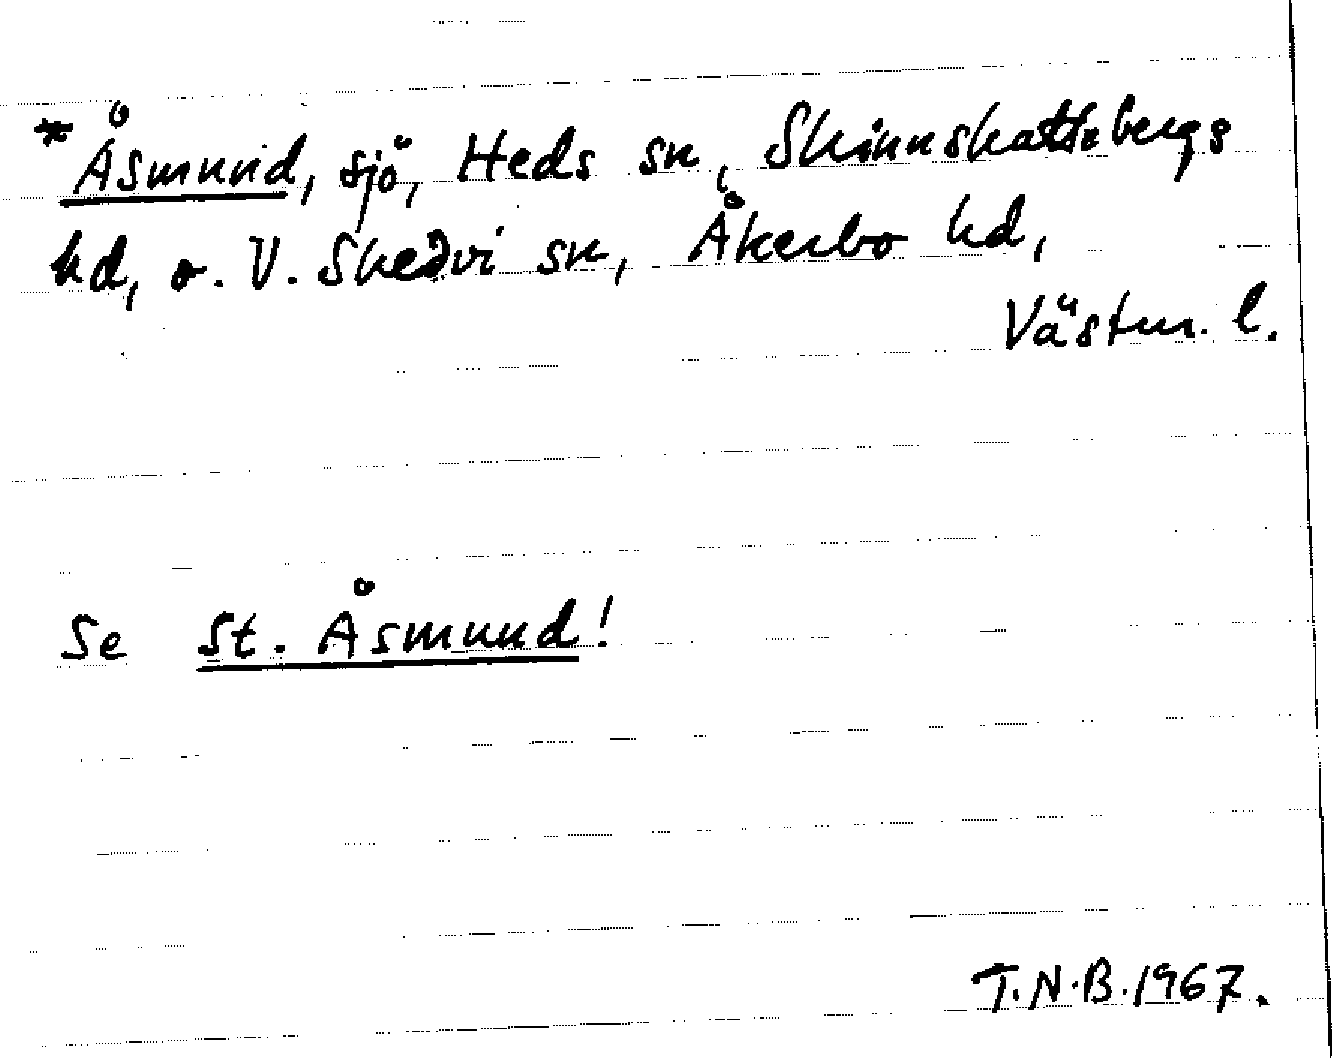 *Åsmund, sjö, Heds sn, Skinnskattebergs
hd, o. V. Skedvi sn, Åkerbo hd,
Västm. l.
Se St. Åsmund!
T.N.B. 1967.